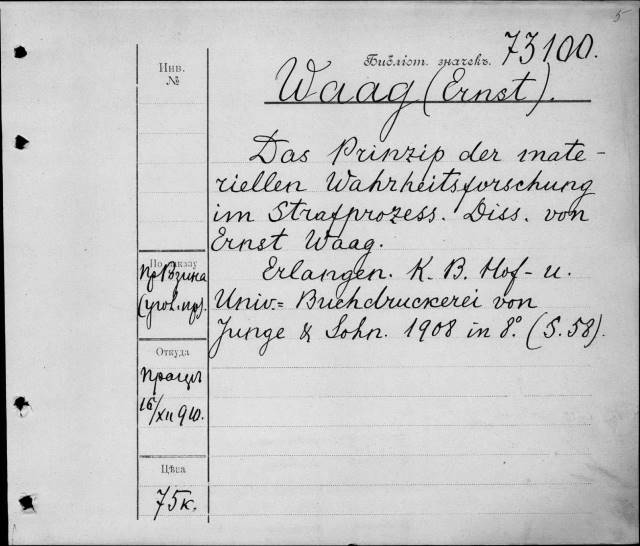 5
Библіот. значекъ. 73100.
Инв.
№
Waag (Ernst).
Das Prinzip der mate-
riellen Wahrheitsforschung
im Strafprozess. Diss. von
Ernst Waag.
Erlangen. K. B. Hof- u.
Univ.= Buchdruckerei von
Junge & Sohn. 1908 in 8° (S. 58).
По заказу
(угол. пр).
Откуда
16/XII 910.
Цѣна
75 к.